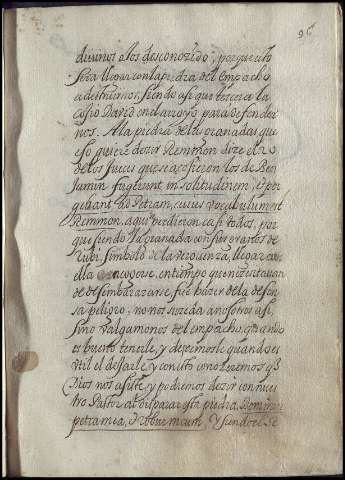 95
divinos a los desconozido, porque esto
sera llegar con la piedra del empacho
a destruirnos, siendo asi que tercera la
cojio David en el arroyo, para defender
nos. A la piedra de las granadas que
eso quiere dezir Remmon dize el 20
de los Jueces que se acojieron los de Ben
jamin fugerunt in solitudinem, et per
gebant ad Petram, cuius vocabulum est
Remmon, aqui perdieron casi todos, por
que siendo la granada con sus granos de
rubi, simbolo de la verguenza, llegar a
ella encojerse, en tiempo que necesitavan
de desembarazarse, fue hazer de la defen
sa peligro; no nos suceda a nosotros asi,
sino valgamonos del empacho, quando
es bueno tenerle, y desecemosle quando es
util el dejarle, y con esto conozeremos q
Dios nos asiste, y podremos dezir con nues
tro Pastor al disparar esta piedra, Dominus
petra mea, et robur meum, y siendo el Se